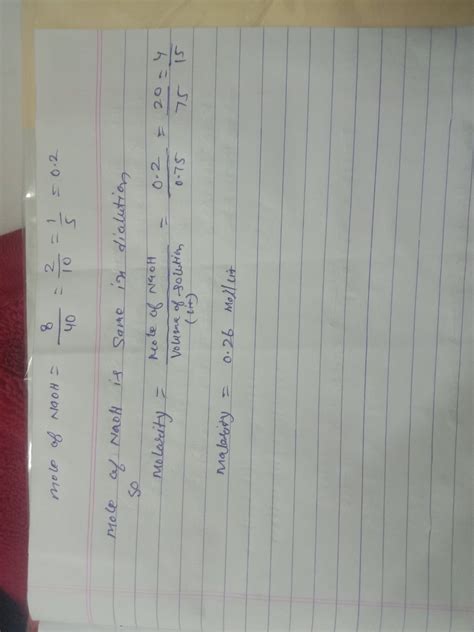 mole of NaOH = 8/40 = 2/10 = 1/5 = 0.2
mole of NaOH is same in dialution
so
molarity = mole of NaOH / volume of solution (lit) = 0.2/0.75 = 20/75 = 4/15
malarity = 0.26 mol/lit